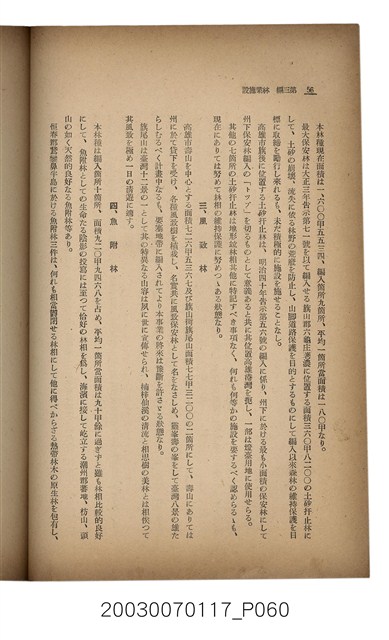 56　第三編　林業施設
本林種現在面積は一、六〇〇甲五五三四、編入箇所九箇所、平均一箇所當面積は一八〇甲なり。
最大保安林は大正三年告示第七一號を以て編入せる旗山郡六龜庄荖濃に位置する面積三六〇甲八二〇〇の土砂扞止林に
して、土砂の崩壞、流失に依る林野の荒廢を防止し、山脚道路保護を目的とするものにして編入以來森林の維持保護を目
標に取締を勵行し來れるも、未だ積極的に施設を施せることなし。
高雄市旗後に位置する土砂扞止林は、明治四十年告示第五六號の編入に係り、州下に於ける最も小面積の保安林にして
州下保安林編入の「トップ」を切るものとして意義あると共に其位置高雄港灣を扼し、一部は燈臺用地に使用せらる。
其他の七箇所の土砂扞止林は地形竝林相其他に特記すべき事項なく、何れも何等かの施設を要するべく認めらるゝも、
現在にありては努めて林相の維持保護に努めつゝある狀態なり。
三、風致林
高雄市壽山を中心とする面積七二六甲五三六七及び旗山街旗尾山面積七七甲三二〇〇の二箇所にして、壽山にありては
州に於て貸下を受け、各種風致樹を植栽し、名實共に風致保安林として名をなさしめ、龜峯壽の峯をして臺灣八景の雄た
らしむるべく計畫中なるも、要塞地帶に編入されてより本事業の將來は豫斷を許さゞる狀態なり。
旗尾山は臺灣十二景の一として其の特異なる山容は夙に世に宣傳せられ、楠梓仙溪の清流と相思樹の美林とは相俟つて
其風致を極め一日の清遊に適す。
四、魚附林
本林種は編入箇所十箇所、面積九二〇甲九四六八を占め、平均一箇所當面積は九十甲餘に過ぎずと雖も林相比較的良好
にして、魚附林としての生命たる陰影の投寫には至つて恰好の林相を爲し、海濱に接して屹立する潮州郡蕃地、枋山、頭
山の如く天然的良好なる魚附林等あり。
恒春郡鵞鑾鼻半島に於ける魚附林三件は、何れも相當鬱閉せる林相にして他に得べからざる熱帶林木の原生林を包有し、
20030070117_P060